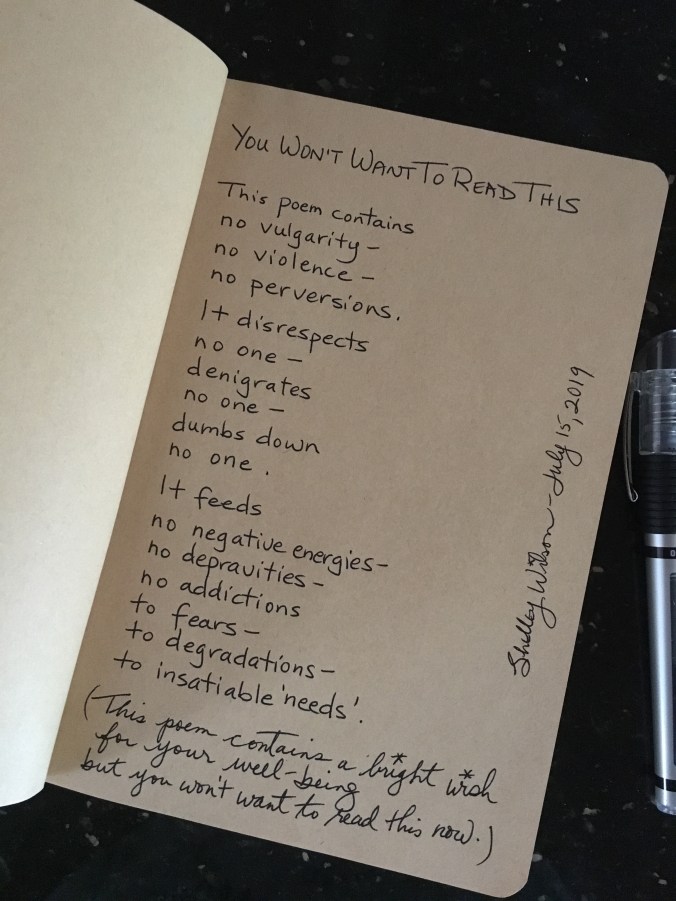 YOU WON'T WANT TO READ THIS
This poem contains
no vulgarity –
no violence –
no perversions.
It disrespects
no one –
denigrates
no one –
dumbs down
no one.
It feeds
no negative energies –
no depravities –
no addictions
to fears –
to degradations –
to insatiable 'needs'.
(This poem contains a br*ght w*sh
for your well-being
but you won't want to read this now.)
Shelley Wilson – July 15, 2019